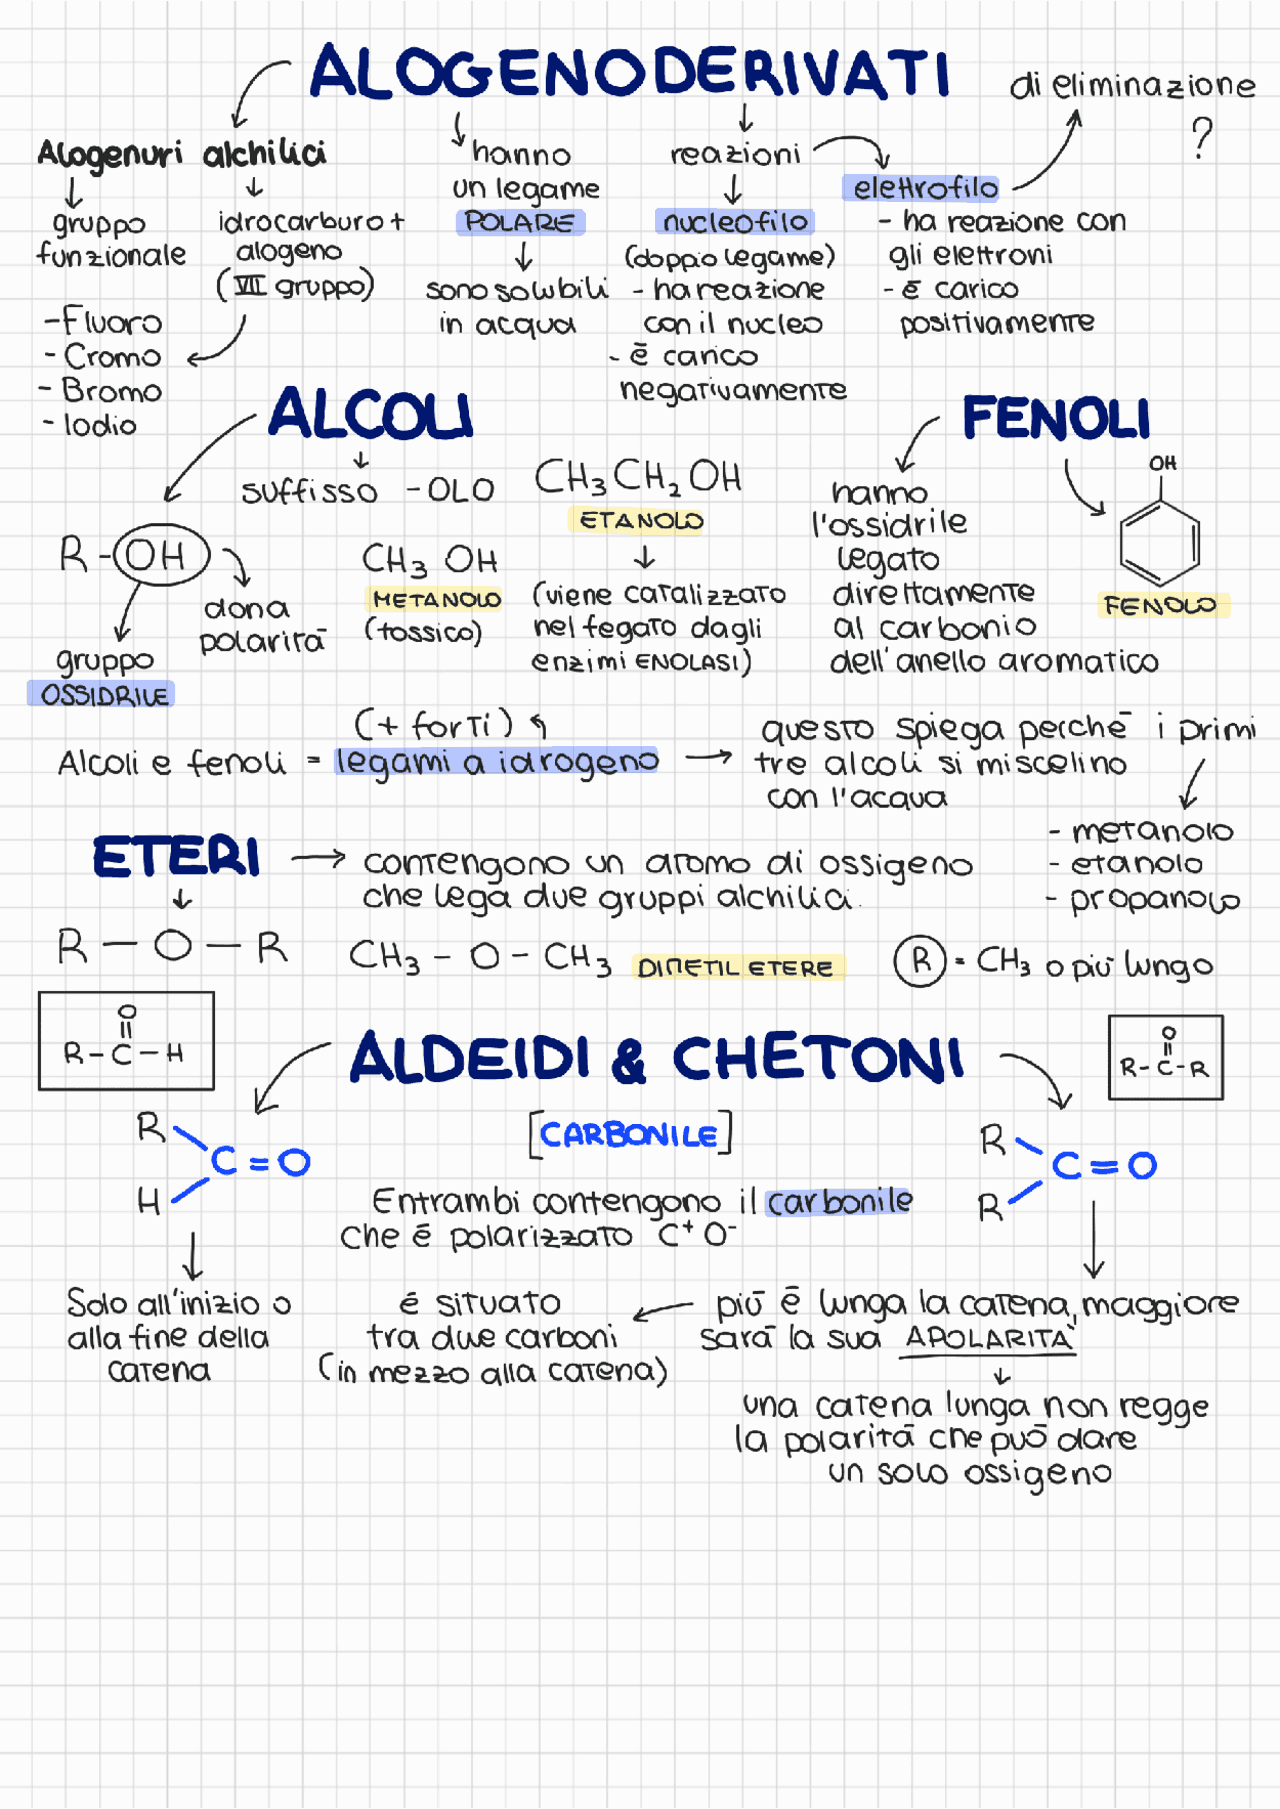 ALOGENODERIVATI
di eliminazione
?
Alogenuri alchilici
gruppo
funzionale
idrocarburo +
alogeno
(VII gruppo)
- Fluoro
- Cromo
- Bromo
- Iodio
hanno
un legame
POLARE
sono solubili
in acqua
reazioni
nucleofilo
(doppio legame)
- ha reazione
con il nucleo
- è carico
negativamente
elettrofilo
- ha reazione con
gli elettroni
- è carico
positivamente
ALCOLI
suffisso -OLO
R-OH
dona
polarità
gruppo
OSSIDRILE
CH3 OH
METANOLO
(tossico)
CH3CH2OH
ETANOLO
(viene catalizzato
nel fegato dagli
enzimi ENOLASI)
FENOLI
hanno
l'ossidrile
legato
direttamente
al carbonio
dell'anello aromatico
OH
FENOLO
(+ forti)
Alcoli e fenoli = legami a idrogeno
questo spiega perchè i primi
tre alcoli si miscelino
con l'acqua
- metanolo
- etanolo
- propanolo
ETERI
contengono un atomo di ossigeno
che lega due gruppi alchilici.
R — O — R
CH3 - O - CH3 DIMETIL ETERE
R = CH3 o più lungo
O
R-C-H
ALDEIDI & CHETONI
O
R-C-R
[CARBONILE]
R
C=O
H
R
C=O
R
Entrambi contengono il carbonile
che è polarizzato C+ O-
Solo all'inizio o
alla fine della
catena
è situato
tra due carboni
(in mezzo alla catena)
più è lunga la catena, maggiore
sarà la sua APOLARITÀ
una catena lunga non regge
la polarità che può dare
un solo ossigeno